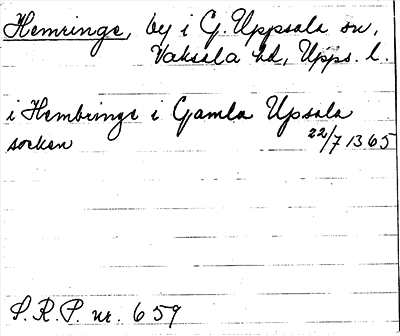 Hemringe, by i G. Uppsala sn,
Vaksala hd, Upps. l.
i Hembringe i Gamla Upsala
socken 22/7 1365
S.R.P. nr. 659